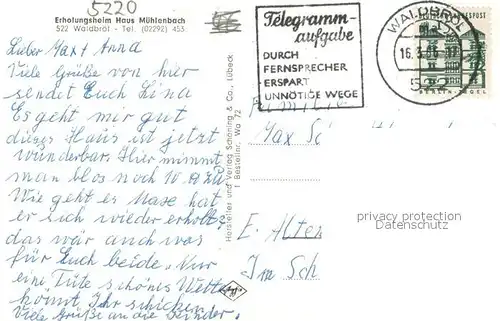 5220
Erholungsheim Haus Mühlenbach
522 Waldbröl - Tel. (02292) 453
Lieber Max + Anna
Viele Grüße von hier
sendet Euch Lina
Es geht mir gut
dieses Haus ist jetzt
wunderbar. Hier nimmt
man blos noch 10
Wie geht es Maxe hat
er sich wieder erholt?
das wär auch was
für Euch beide. Nur
eine Tüte schönes Wetter
könnt Ihr schicken
Viele Grüße an die Kinder
Hersteller und Verlag Schöning & Co., Lübeck
1 Bestellnr. Wa 72
Telegramm-
aufgabe
DURCH
FERNSPRECHER
ERSPART
UNNÖTIGE WEGE
WALDBRÖL
16.
522
Familie
Max Sc
E. Alten
Im Sch
privacy protection
Datenschutz